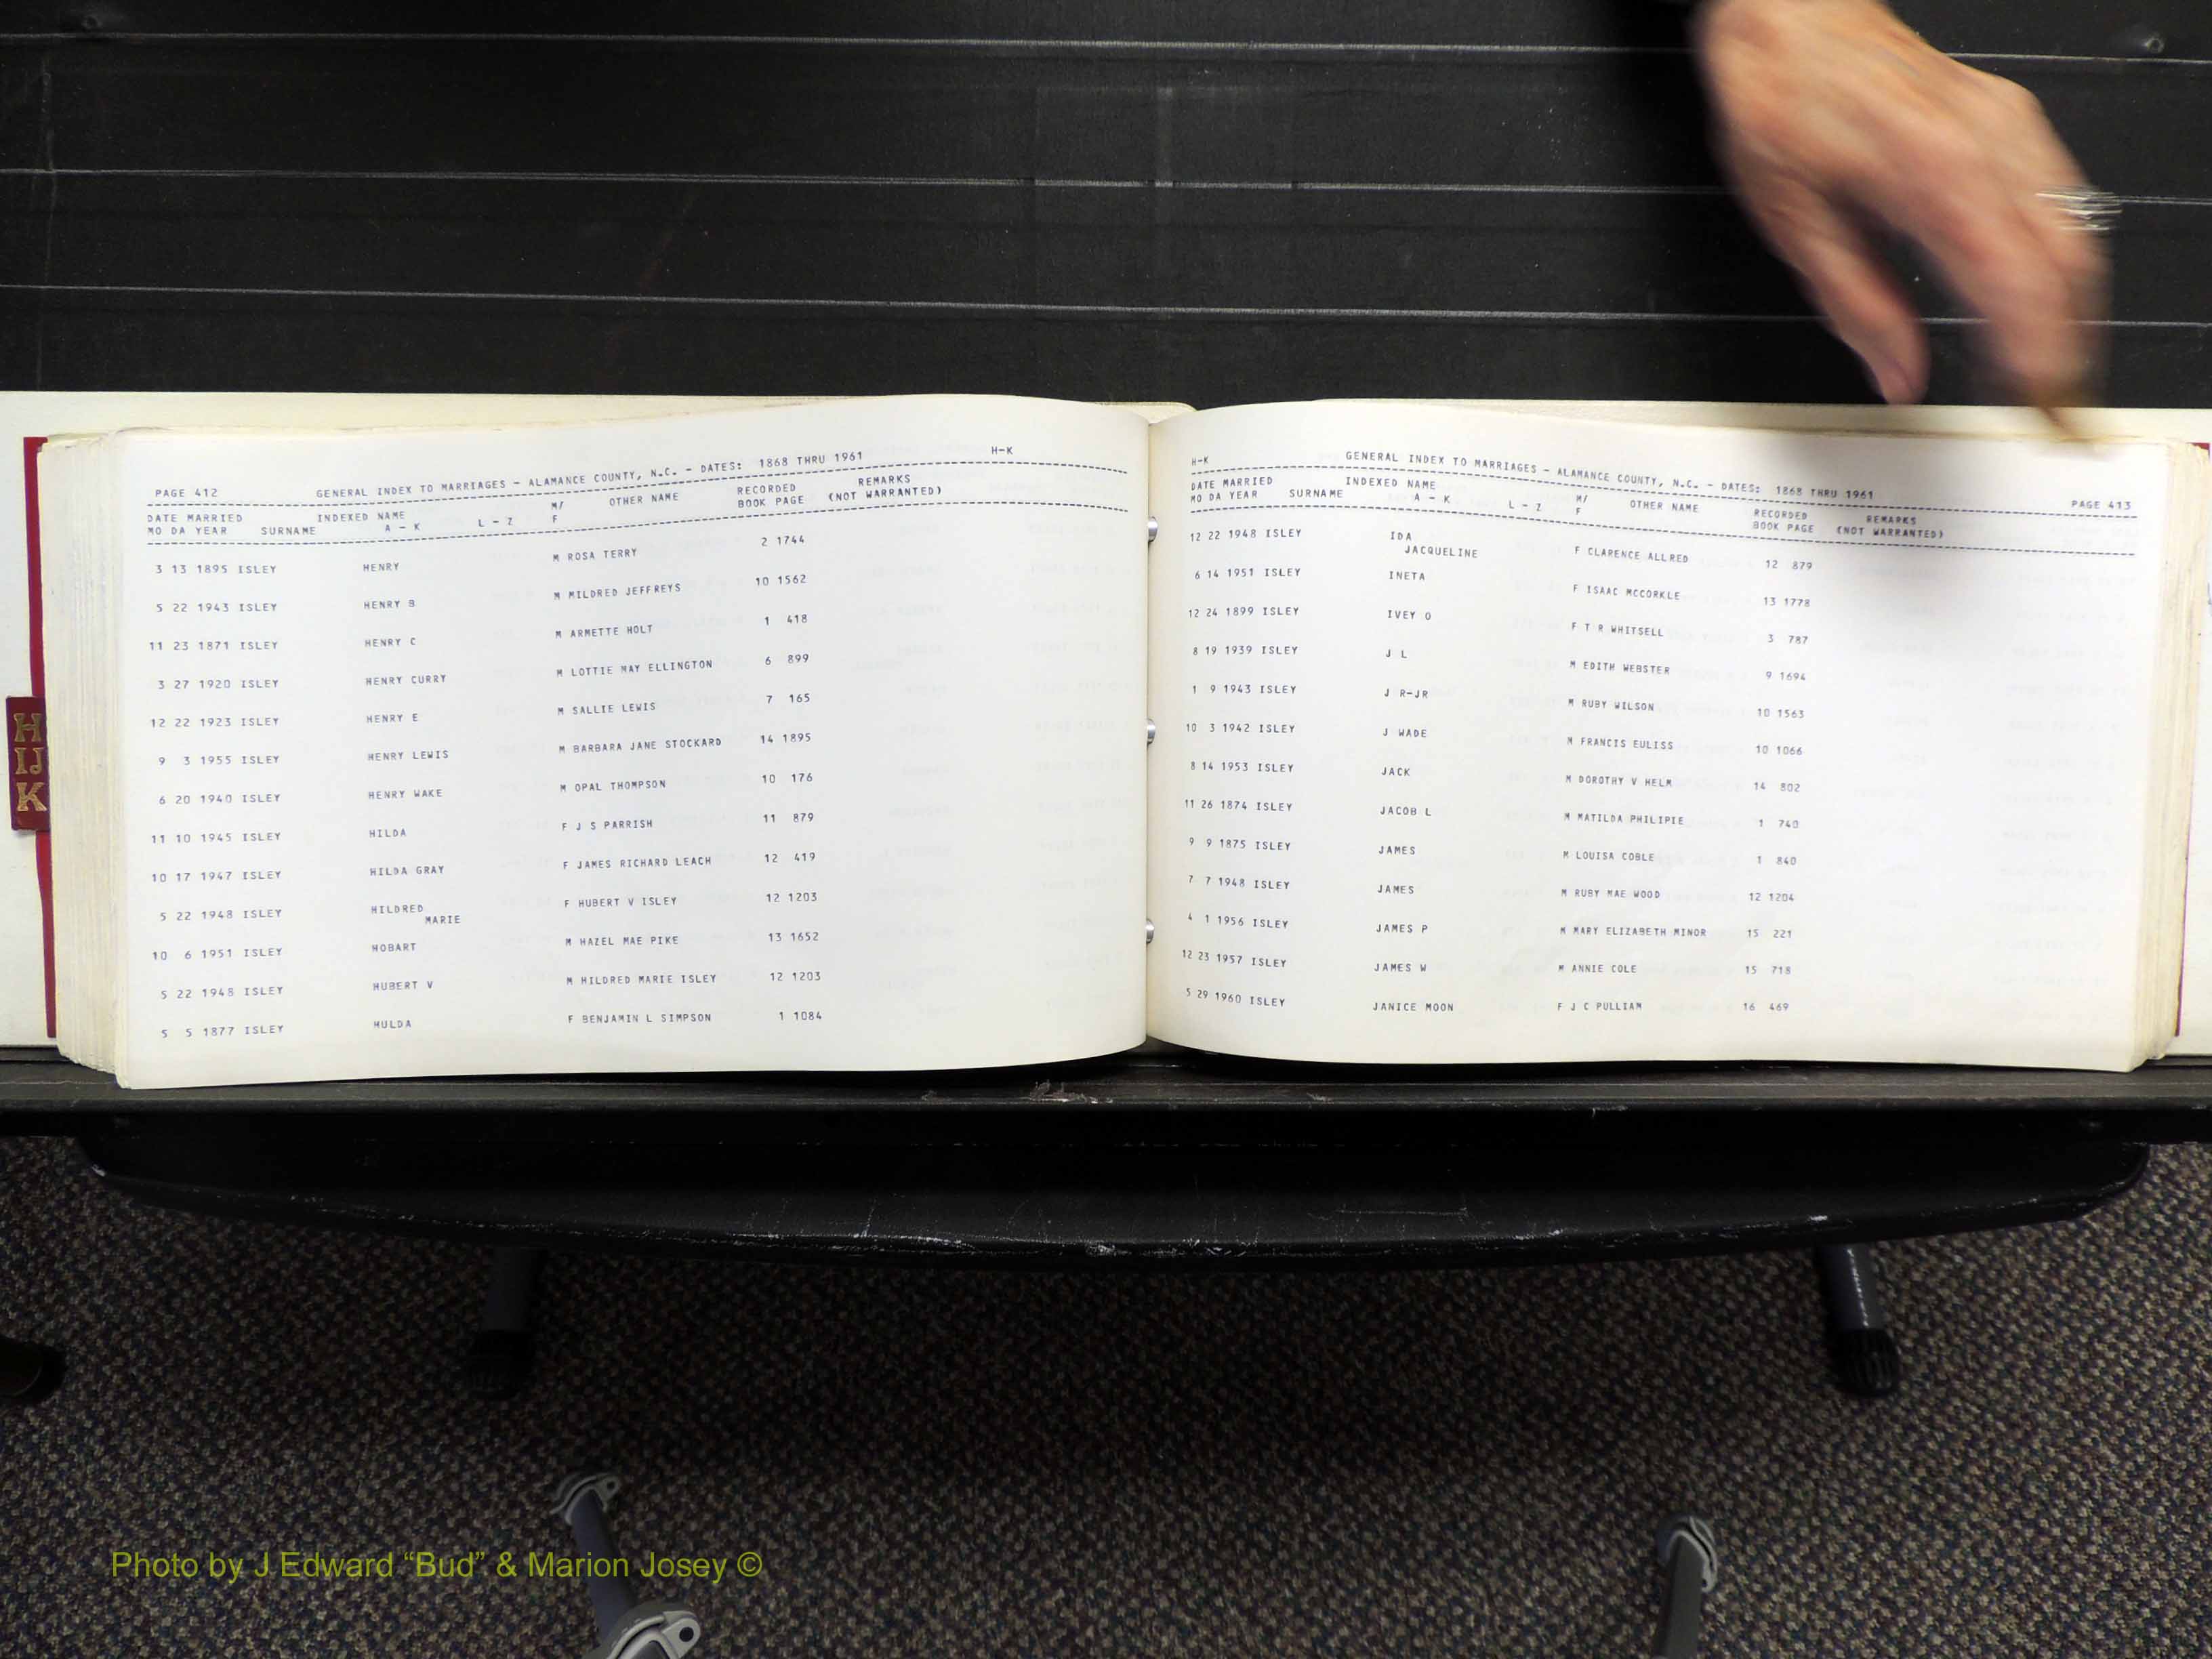 H
IJ
K
PAGE 412 GENERAL INDEX TO MARRIAGES - ALAMANCE COUNTY, N.C. - DATES: 1868 THRU 1961 H-K
DATE MARRIED INDEXED NAME M/ OTHER NAME RECORDED REMARKS
MO DA YEAR SURNAME A - K L - Z F BOOK PAGE (NOT WARRANTED)
3 13 1895 ISLEY HENRY M ROSA TERRY 2 1744
5 22 1943 ISLEY HENRY B M MILDRED JEFFREYS 10 1562
11 23 1871 ISLEY HENRY C M ARMETTE HOLT 1 418
3 27 1920 ISLEY HENRY CURRY M LOTTIE MAY ELLINGTON 6 899
12 22 1923 ISLEY HENRY E M SALLIE LEWIS 7 165
9 3 1955 ISLEY HENRY LEWIS M BARBARA JANE STOCKARD 14 1895
6 20 1940 ISLEY HENRY WAKE M OPAL THOMPSON 10 176
11 10 1945 ISLEY HILDA F J S PARRISH 11 879
10 17 1947 ISLEY HILDA GRAY F JAMES RICHARD LEACH 12 419
5 22 1948 ISLEY HILDRED F HUBERT V ISLEY 12 1203
MARIE
10 6 1951 ISLEY HOBART M HAZEL MAE PIKE 13 1652
5 22 1948 ISLEY HUBERT V M HILDRED MARIE ISLEY 12 1203
5 5 1877 ISLEY HULDA F BENJAMIN L SIMPSON 1 1084
H-K GENERAL INDEX TO MARRIAGES - ALAMANCE COUNTY, N.C. - DATES: 1868 THRU 1961 PAGE 413
DATE MARRIED INDEXED NAME M/ OTHER NAME RECORDED REMARKS
MO DA YEAR SURNAME A - K L - Z F BOOK PAGE (NOT WARRANTED)
12 22 1948 ISLEY IDA F CLARENCE ALLRED 12 879
JACQUELINE
6 14 1951 ISLEY INETA F ISAAC MCCORKLE 13 1778
12 24 1899 ISLEY IVEY O F T R WHITSELL 3 787
8 19 1939 ISLEY J L M EDITH WEBSTER 9 1694
1 9 1943 ISLEY J R-JR M RUBY WILSON 10 1563
10 3 1942 ISLEY J WADE M FRANCIS EULISS 10 1066
8 14 1953 ISLEY JACK M DOROTHY V HELM 14 802
11 26 1874 ISLEY JACOB L M MATILDA PHILIPIE 1 740
9 9 1875 ISLEY JAMES M LOUISA COBLE 1 840
7 7 1948 ISLEY JAMES M RUBY MAE WOOD 12 1204
4 1 1956 ISLEY JAMES P M MARY ELIZABETH MINOR 15 221
12 23 1957 ISLEY JAMES W M ANNIE COLE 15 718
5 29 1960 ISLEY JANICE MOON F J C PULLIAM 16 469
Photo by J Edward “Bud” & Marion Josey ©